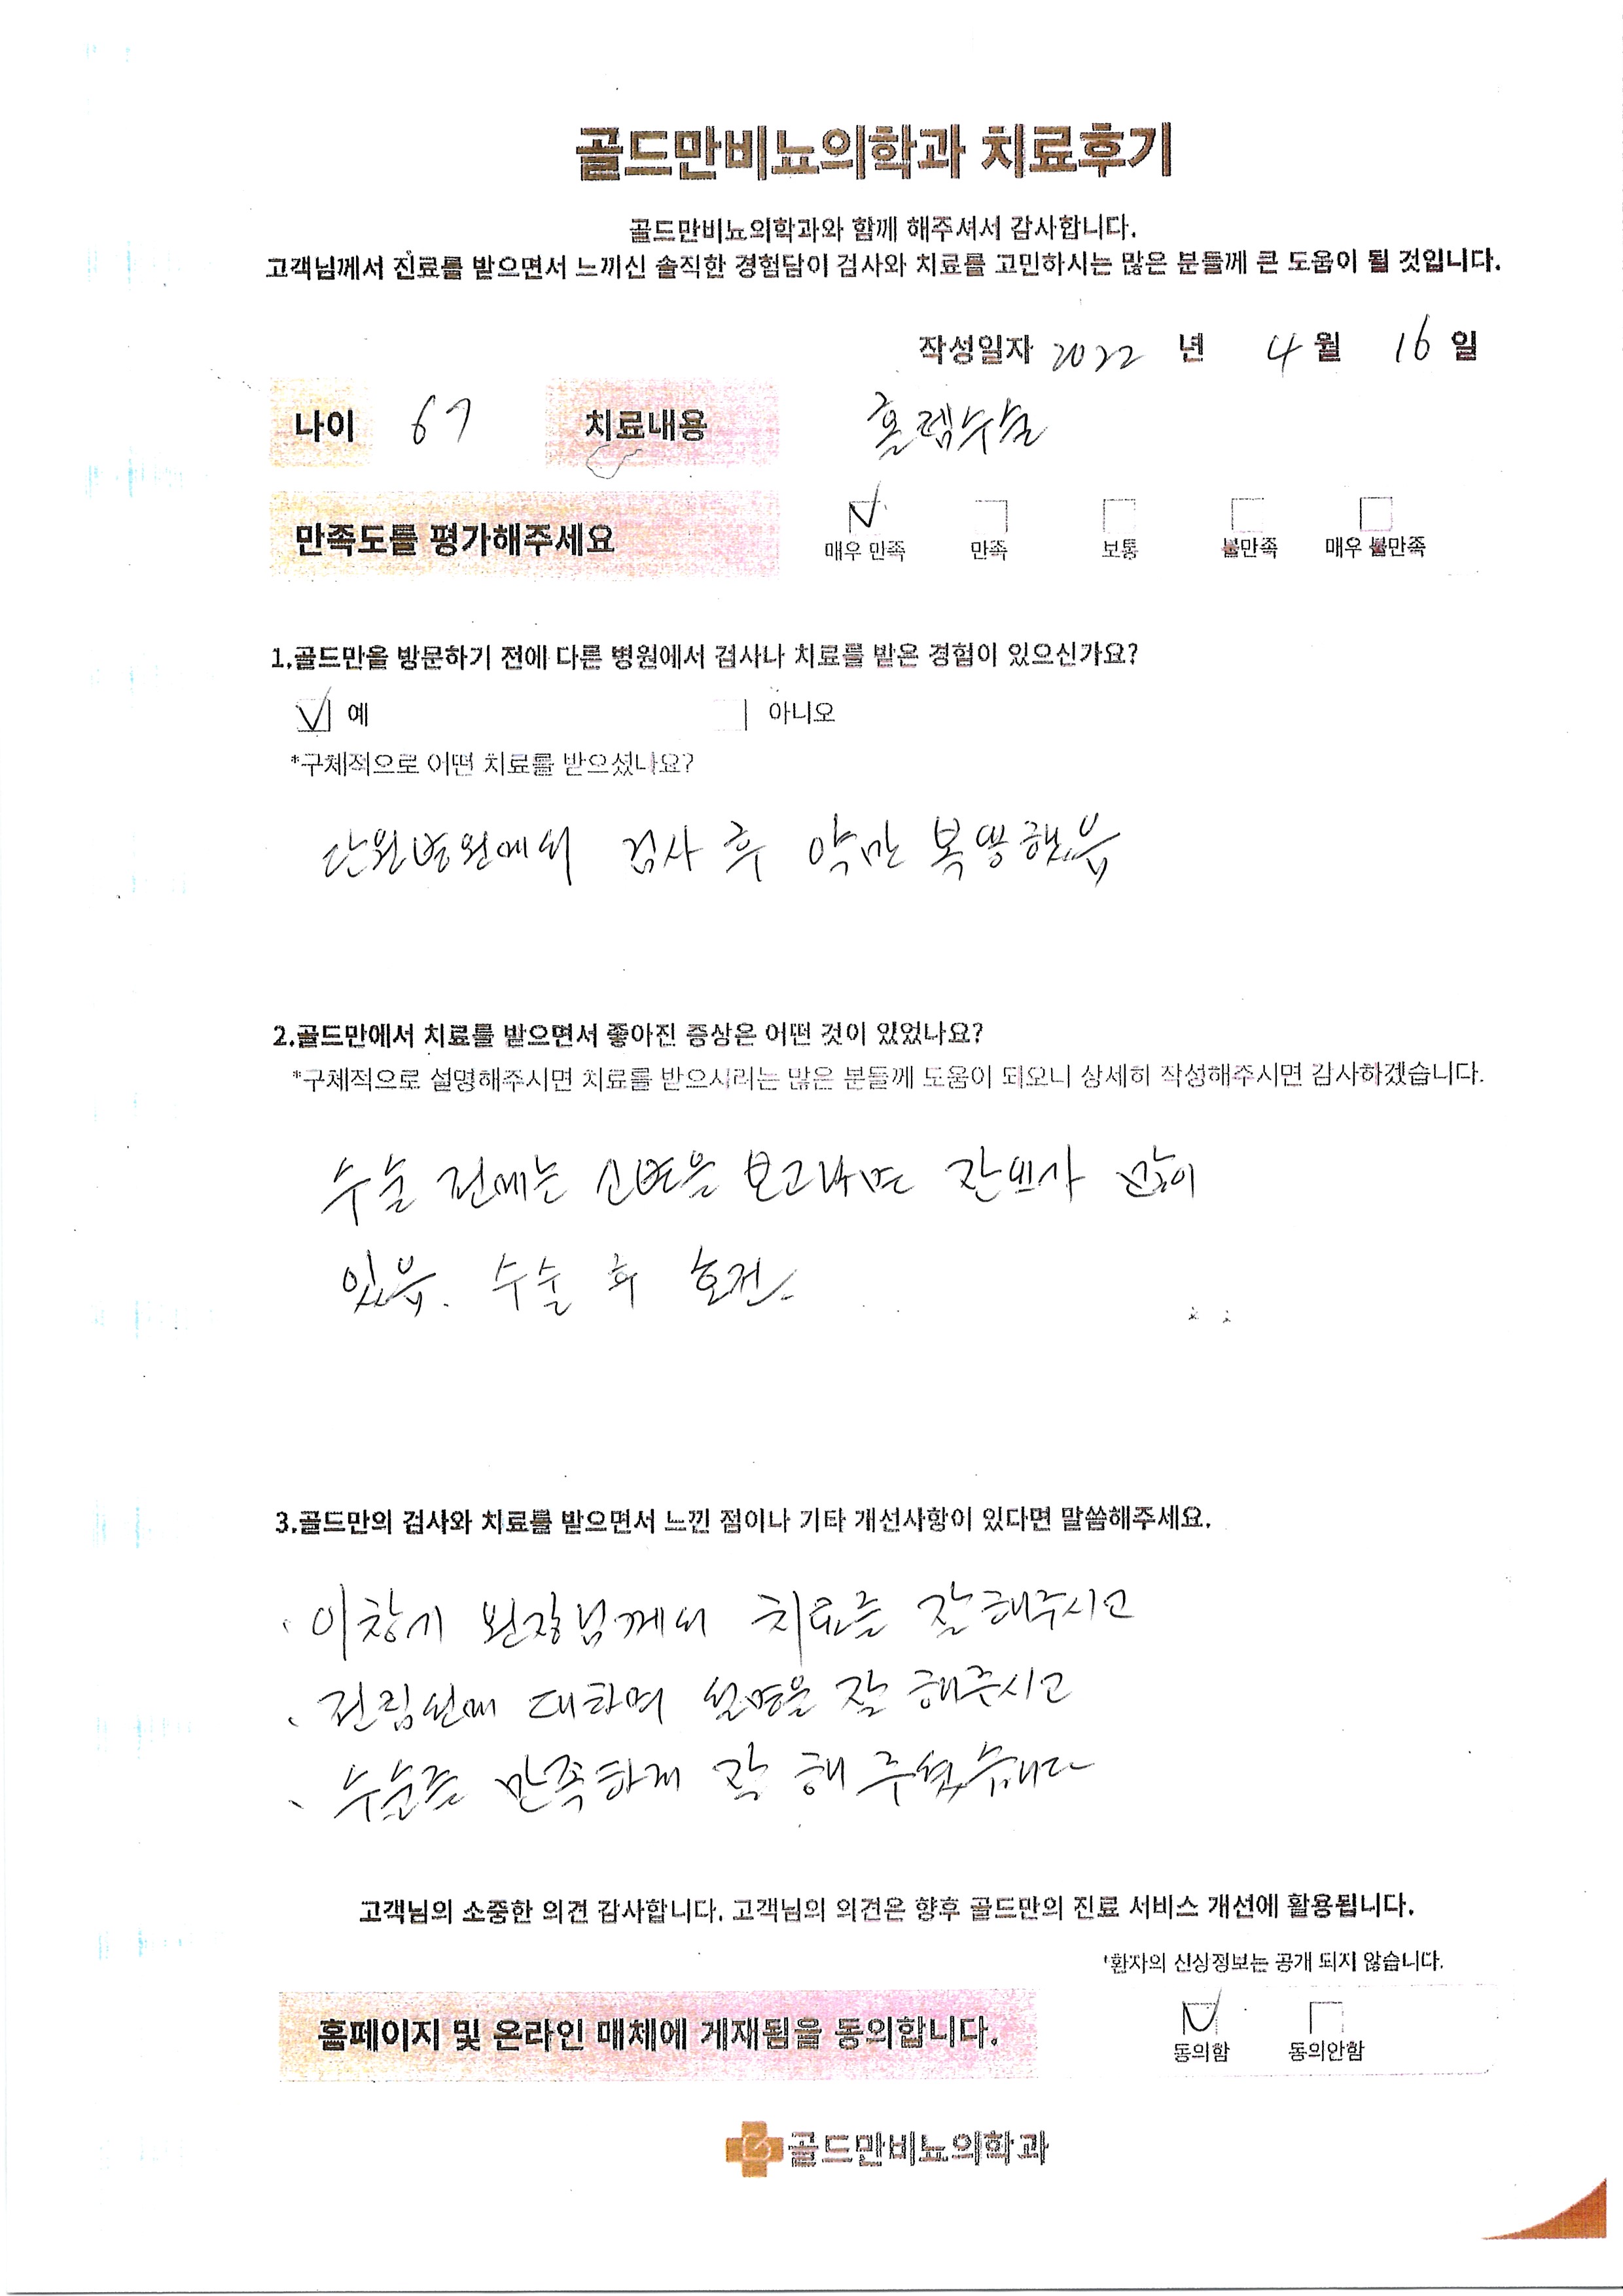 골드만비뇨의학과 치료후기
골드만비뇨의학과와 함께 해주셔서 감사합니다.
고객님께서 진료를 받으면서 느끼신 솔직한 경험담이 검사와 치료를 고민하시는 많은 분들께 큰 도움이 될 것입니다.
작성일자 2022 년 4 월 16 일
나이 67 치료내용 홀렙수술
만족도를 평가해주세요
매우 만족 만족 보통 불만족 매우 불만족
1.골드만을 방문하기 전에 다른 병원에서 검사나 치료를 받은 경험이 있으신가요?
예 아니오
*구체적으로 어떤 치료를 받으셨나요?
단원병원에서 검사 후 약만 복용했음
2.골드만에서 치료를 받으면서 좋아진 증상은 어떤 것이 있었나요?
*구체적으로 설명해주시면 치료를 받으시려는 많은 분들께 도움이 되오니 상세히 작성해주시면 감사하겠습니다.
수술 전에는 소변을 보고나면 잔뇨가 많이
있음. 수술 후 호전.
3.골드만의 검사와 치료를 받으면서 느낀 점이나 기타 개선사항이 있다면 말씀해주세요.
· 이창기 원장님께서 치료를 잘 해주시고
、 전립선에 대하여 설명을 잘 해주시고
、 수술을 만족하게 잘 해 주셨습니다
고객님의 소중한 의견 감사합니다. 고객님의 의견은 향후 골드만의 진료 서비스 개선에 활용됩니다.
*환자의 신상정보는 공개 되지 않습니다.
홈페이지 및 온라인 매체에 게재됨을 동의합니다.
동의함 동의안함
골드만비뇨의학과